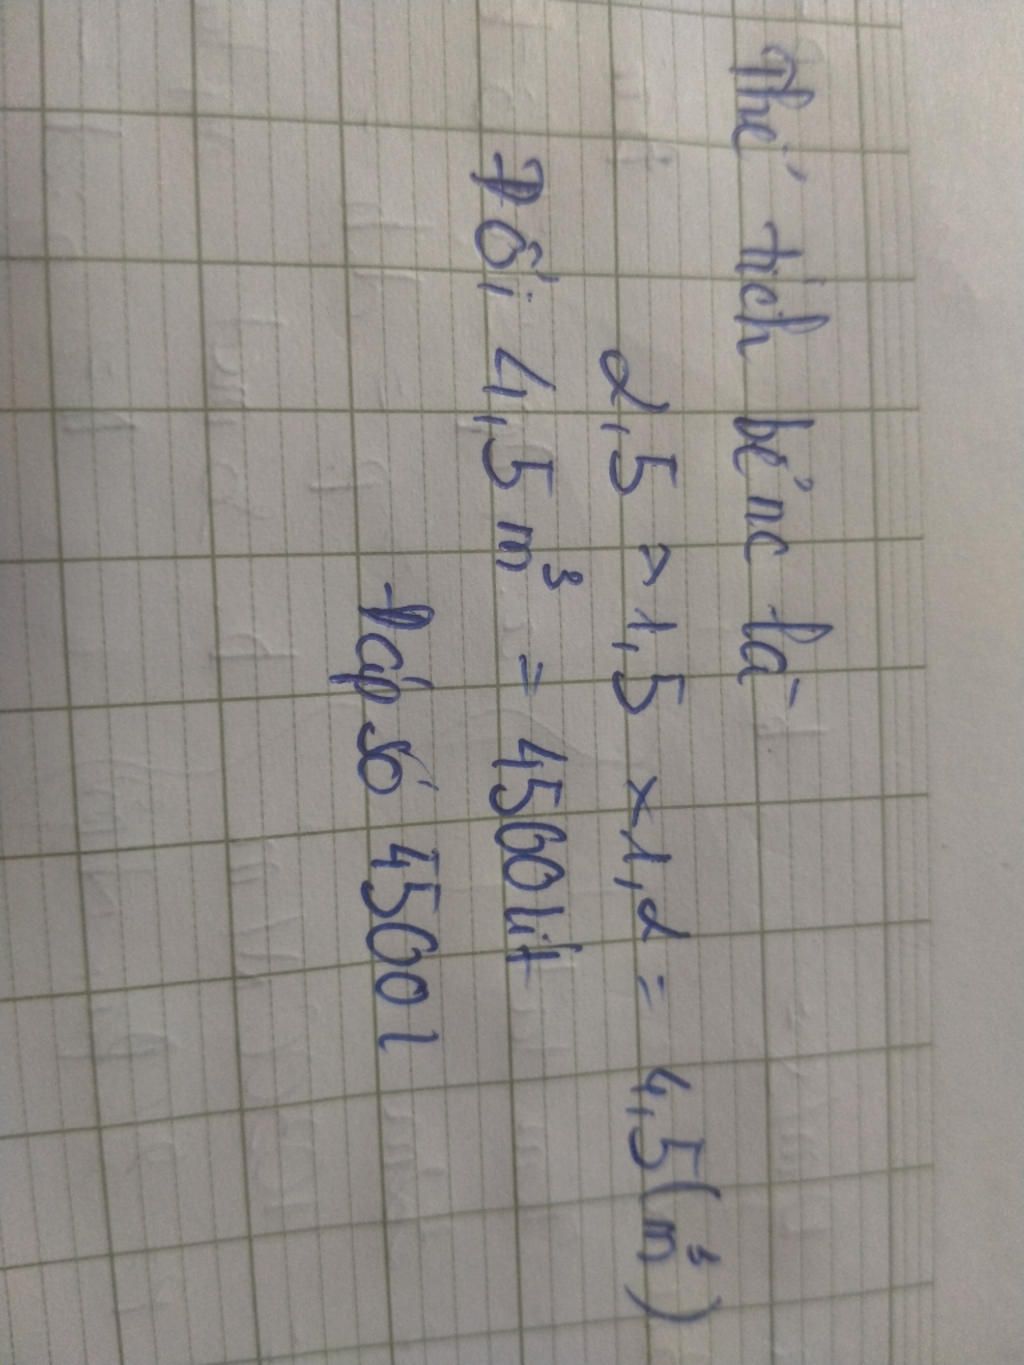 Thể tích bể nc là
2,5 x 1,5 x 1,2 = 4,5 (m³)
Đổi 4,5 m³ = 4500 lít
Đáp số 4500 l